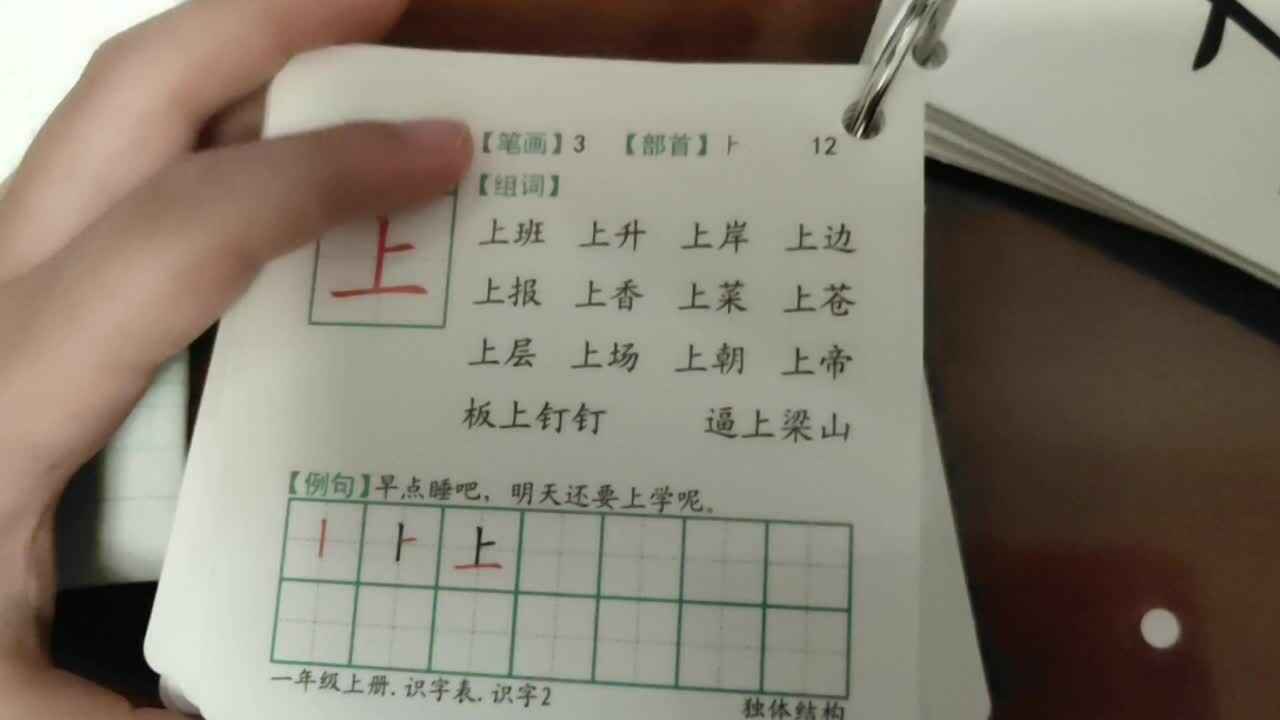 【笔画】3 【部首】⺊ 12
【组词】
上
上班 上升 上岸 上边
上报 上香 上菜 上苍
上层 上场 上朝 上帝
板上钉钉 逼上梁山
【例句】早点睡吧，明天还要上学呢。
丨 ⺊ 上
一年级上册.识字表.识字2
独体结构